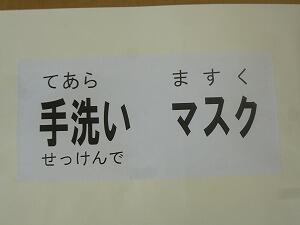 てあら ますく
手洗い マスク
せっけんで